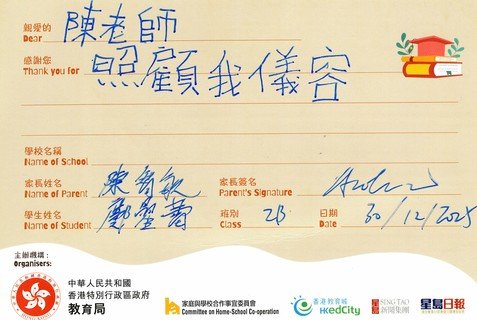 親愛的 陳老師
Dear
感謝您 照顧我儀容
Thank you for
學校名稱
Name of School
家長姓名 家長簽名
Name of Parent Parent's Signature
學生姓名 班別 2B 日期 30/12/2025
Name of Student Class Date
主辦機構：
Organisers:
中華人民共和國
香港特別行政區政府
教育局
家庭與學校合作事宜委員會
Committee on Home-School Co-operation
香港教育城
HKedCity
星島 SING TAO
新聞集團
星島日報